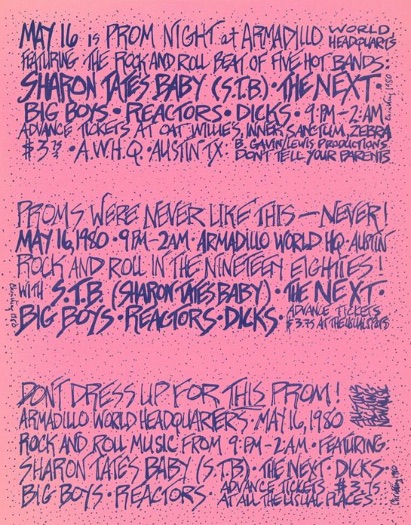 MAY 16 is PROM NIGHT at ARMADILLO WORLD HEADQUARTERS
FEATURING THE ROCK AND ROLL BEAT OF FIVE HOT BANDS:
SHARON TATE'S BABY (S.T.B.) • THE NEXT •
BIG BOYS • REACTORS • DICKS • 9 PM - 2 AM
ADVANCE TICKETS AT OAT WILLIE'S, INNER SANCTUM, ZEBRA
$3.75 • A.W.H.Q. • AUSTIN TX • B. GAVIN/LEWIS PRODUCTIONS
DON'T TELL YOUR PARENTS
1980
PROMS WERE NEVER LIKE THIS — NEVER!
MAY 16, 1980 • 9 PM - 2AM • ARMADILLO WORLD HQ • AUSTIN
ROCK AND ROLL IN THE NINETEEN EIGHTIES!
WITH S.T.B. (SHARON TATE'S BABY) • THE NEXT •
BIG BOYS • REACTORS • DICKS • ADVANCE TICKETS
$3.75 AT THE USUAL SPOTS
DON'T DRESS UP FOR THIS PROM!
ARMADILLO WORLD HEADQUARTERS • MAY 16, 1980
ROCK AND ROLL MUSIC FROM 9 PM - 2 AM • FEATURING
SHARON TATE'S BABY (S.T.B.) • THE NEXT • DICKS •
BIG BOYS • REACTORS • ADVANCE TICKETS $3.75
AT ALL THE USUAL PLACES